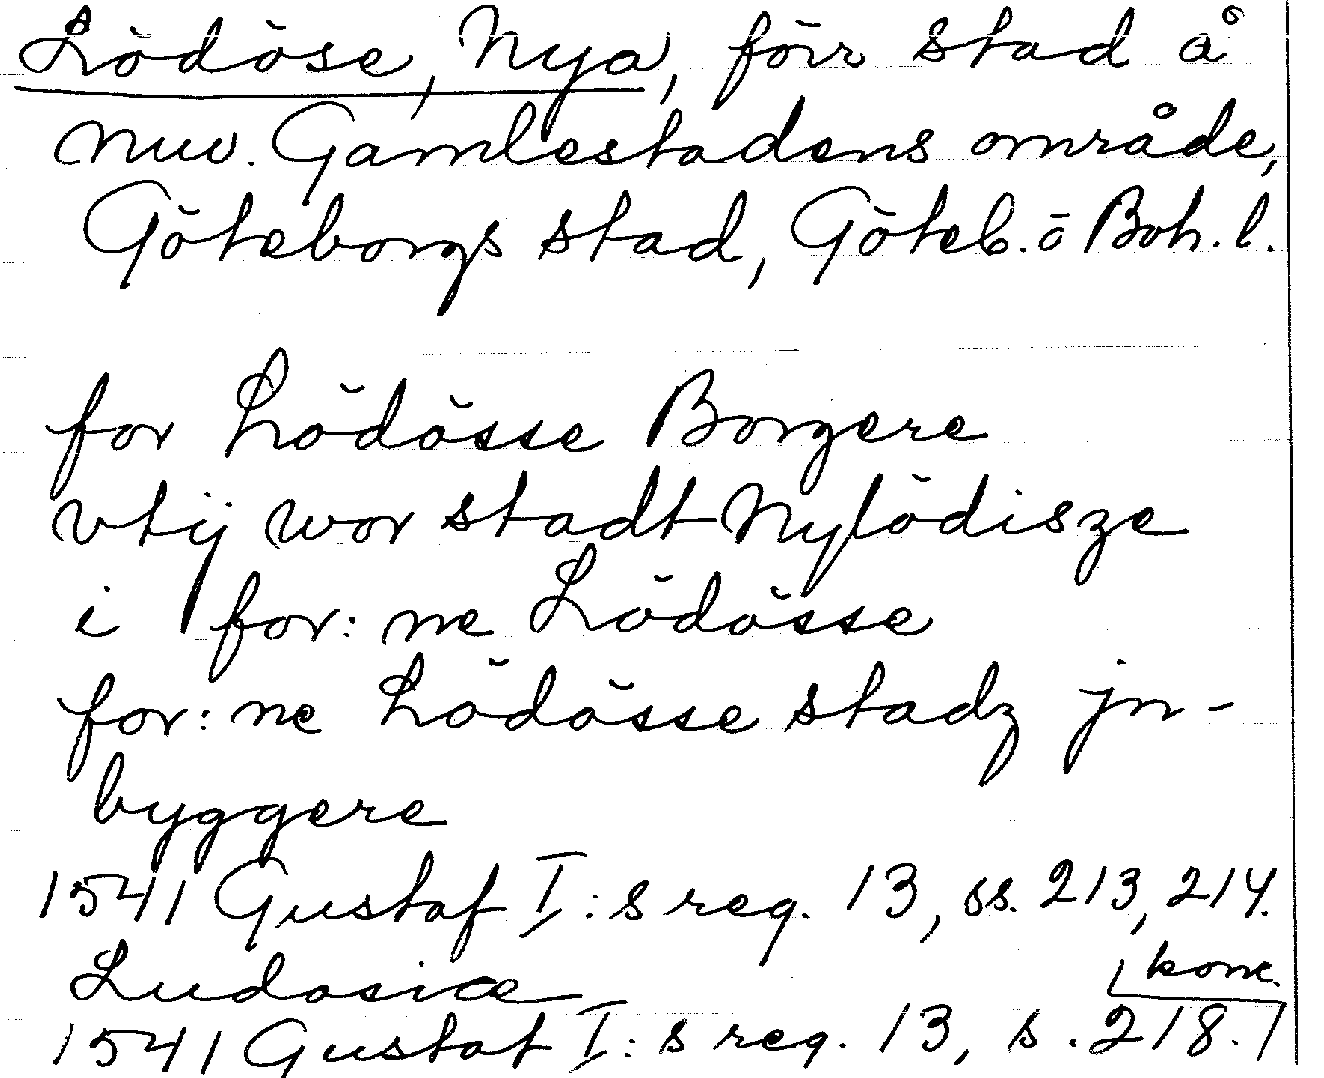 Lödöse, Nya, förr stad å
nuv. Gamlestadens område,
Göteborgs stad, Göteb. o Boh. l.
for Lödösse Borgere
vtij wor stadt Nylödisze
i for:ne Lödösse
for:ne Lödösse stadz jn-
byggere
1541 Gustaf I:s reg. 13, ss. 213, 214.
Ludosiæ
konc.
1541 Gustaf I:s reg. 13, s. 218.